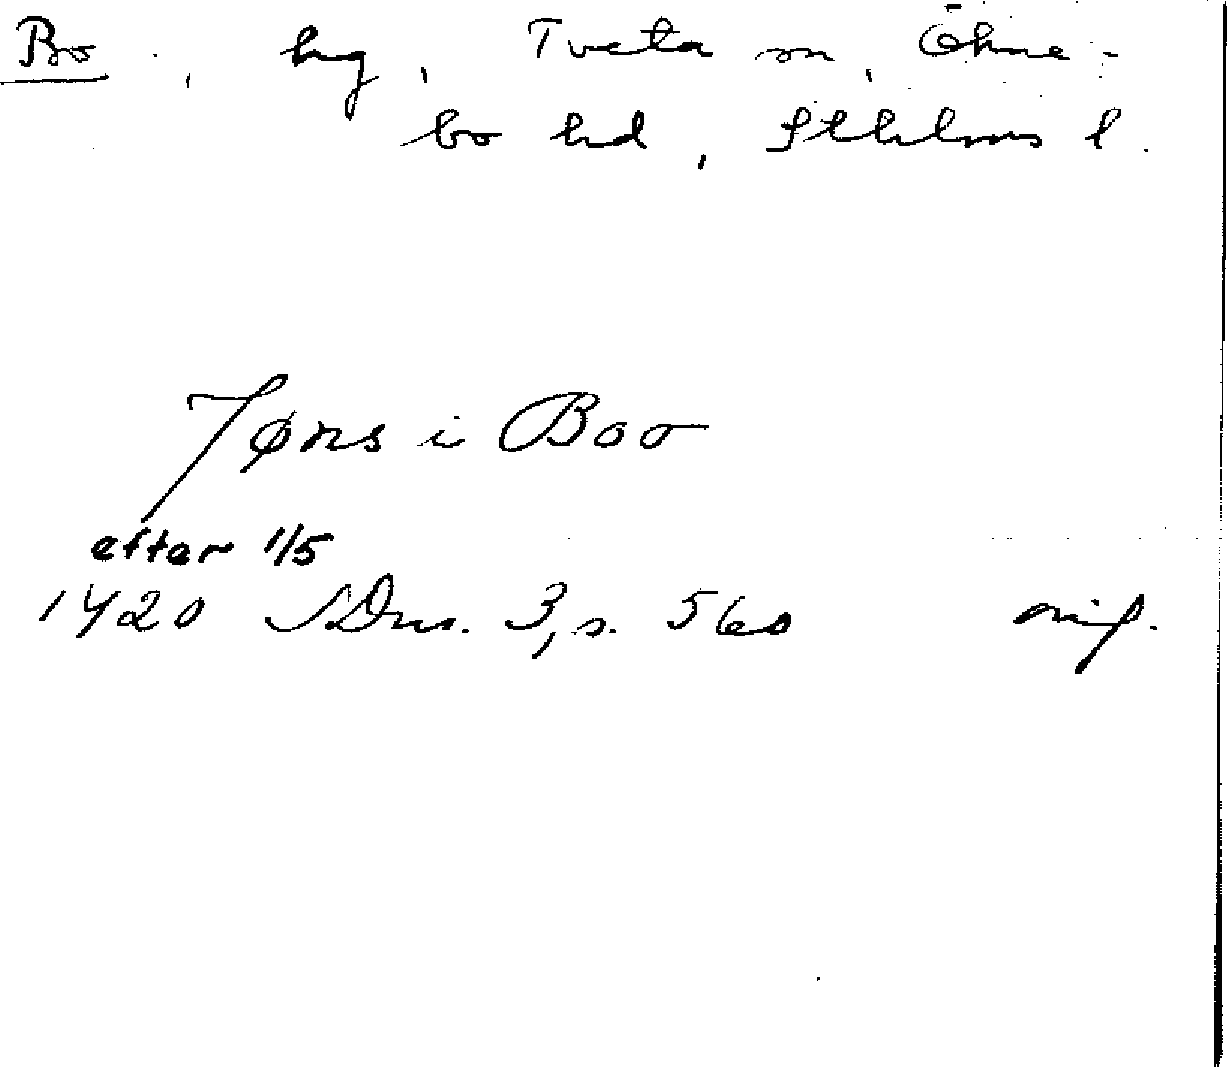 Bo, hg, Tveta sn, Ökne-
bo hd, Sthlms l.
Jøns i Boo
efter 1/5
1420 SDns. 3, s. 560 orig.